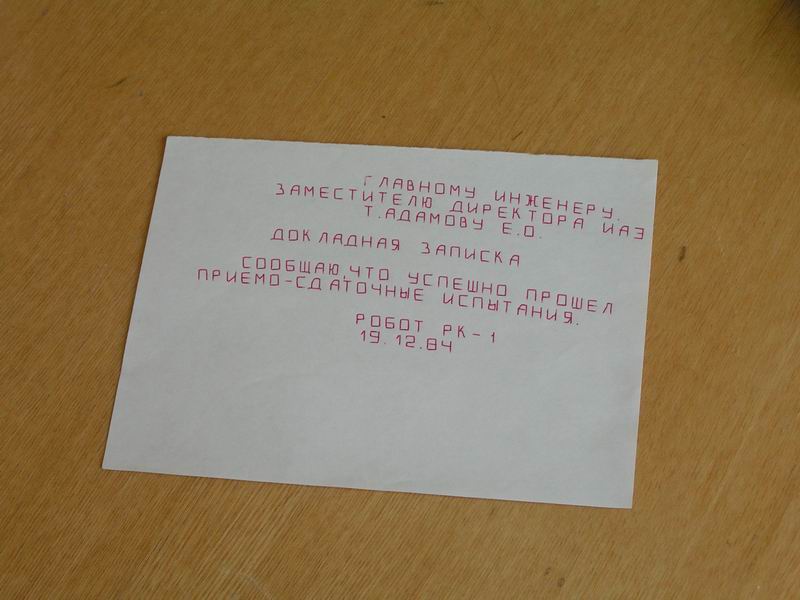 ГЛАВНОМУ ИНЖЕНЕРУ.
ЗАМЕСТИТЕЛЮ ДИРЕКТОРА ИАЭ
Т.АДАМОВУ Е.О.
ДОКЛАДНАЯ ЗАПИСКА
СООБЩАЮ,ЧТО УСПЕШНО ПРОШЕЛ
ПРИЕМО-СДАТОЧНЫЕ ИСПЫТАНИЯ.
РОБОТ РК-1
19.12.84